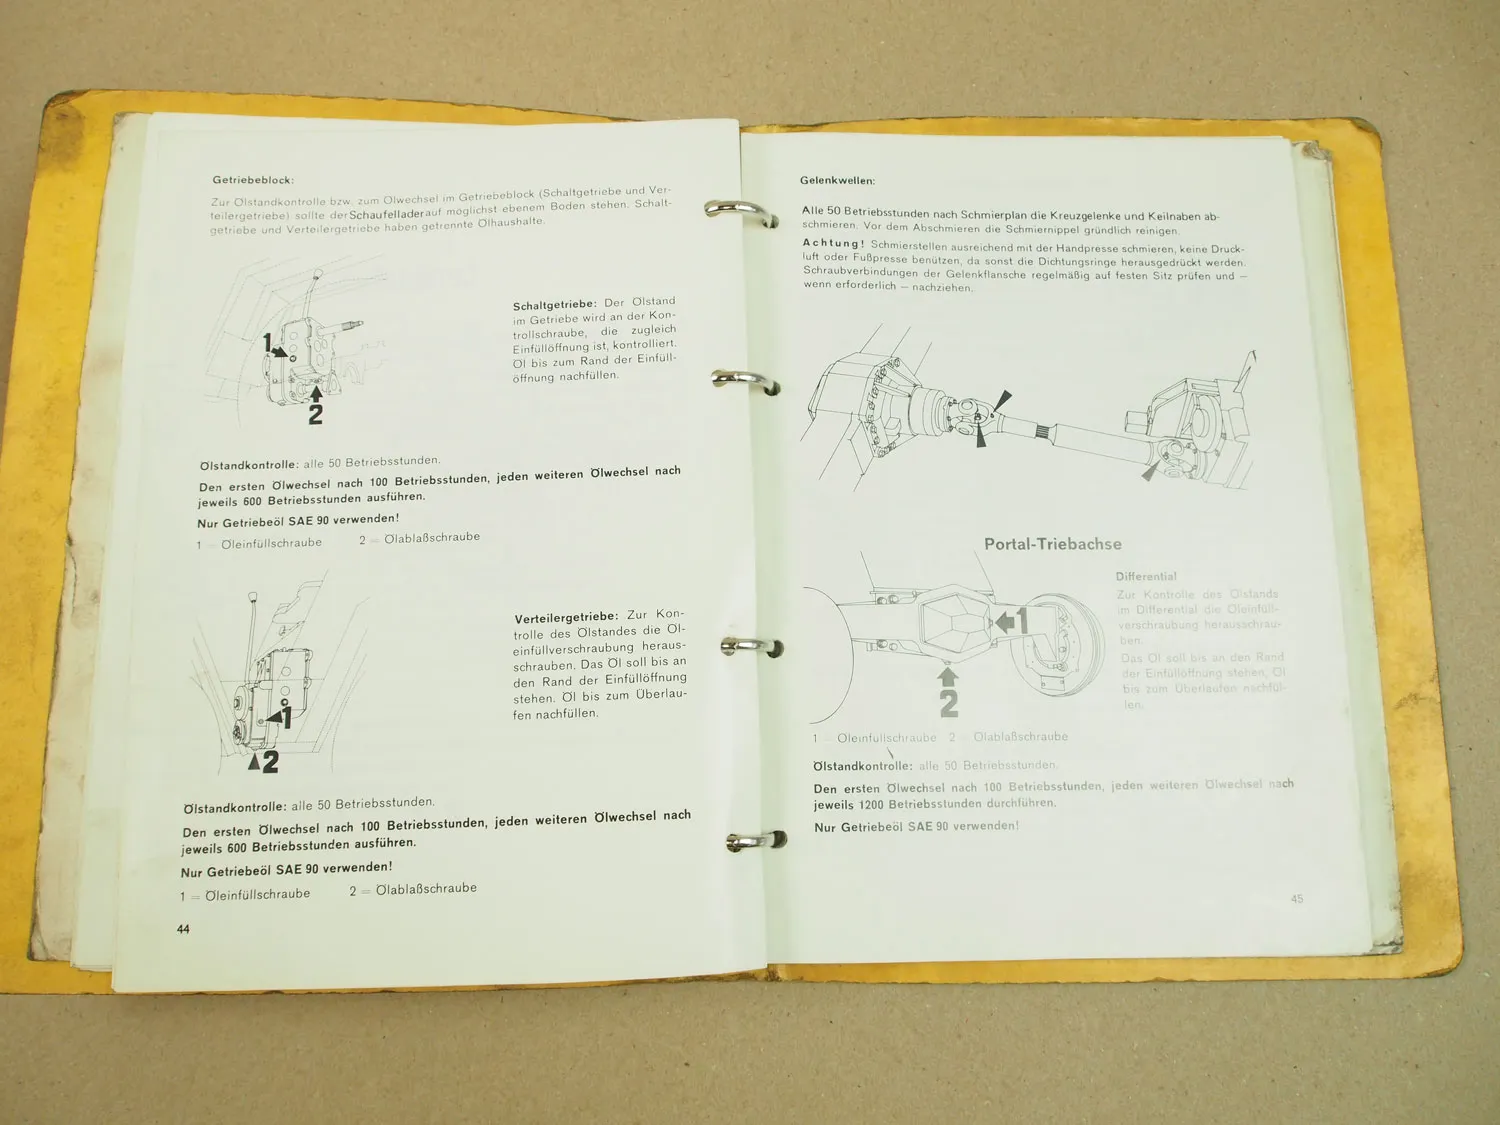 Getriebeblock:
Zur Ölstandkontrolle bzw. zum Ölwechsel im Getriebeblock (Schaltgetriebe und Ver-
teilergetriebe) sollte der Schaufellader auf möglichst ebenem Boden stehen. Schalt-
getriebe und Verteilergetriebe haben getrennte Ölhaushalte.
1
2
Schaltgetriebe: Der Ölstand
im Getriebe wird an der Kon-
trollschraube, die zugleich
Einfüllöffnung ist, kontrolliert.
Öl bis zum Rand der Einfüll-
öffnung nachfüllen.
Ölstandkontrolle: alle 50 Betriebsstunden.
Den ersten Ölwechsel nach 100 Betriebsstunden, jeden weiteren Ölwechsel nach
jeweils 600 Betriebsstunden ausführen.
Nur Getriebeöl SAE 90 verwenden!
1 = Öleinfüllschraube 2 = Ölablaßschraube
1
2
Verteilergetriebe: Zur Kon-
trolle des Ölstandes die Öl-
einfüllverschraubung heraus-
schrauben. Das Öl soll bis an
den Rand der Einfüllöffnung
stehen. Öl bis zum Überlau-
fen nachfüllen.
Ölstandkontrolle: alle 50 Betriebsstunden.
Den ersten Ölwechsel nach 100 Betriebsstunden, jeden weiteren Ölwechsel nach
jeweils 600 Betriebsstunden ausführen.
Nur Getriebeöl SAE 90 verwenden!
1 = Öleinfüllschraube 2 = Ölablaßschraube
44
Gelenkwellen:
Alle 50 Betriebsstunden nach Schmierplan die Kreuzgelenke und Keilnaben ab-
schmieren. Vor dem Abschmieren die Schmiernippel gründlich reinigen.
Achtung! Schmierstellen ausreichend mit der Handpresse schmieren, keine Druck-
luft oder Fußpresse benützen, da sonst die Dichtungsringe herausgedrückt werden.
Schraubverbindungen der Gelenkflansche regelmäßig auf festen Sitz prüfen und —
wenn erforderlich — nachziehen.
Portal-Triebachse
1
2
Differential
Zur Kontrolle des Ölstands
im Differential die Öleinfüll-
verschraubung herausschrau-
ben.
Das Öl soll bis an den Rand
der Einfüllöffnung stehen, Öl
bis zum Überlaufen nachfül-
len.
1 Öleinfüllschraube 2 Ölablaßschraube
Ölstandkontrolle: alle 50 Betriebsstunden.
Den ersten Ölwechsel nach 100 Betriebsstunden, jeden weiteren Ölwechsel nach
jeweils 1200 Betriebsstunden durchführen.
Nur Getriebeöl SAE 90 verwenden!
45